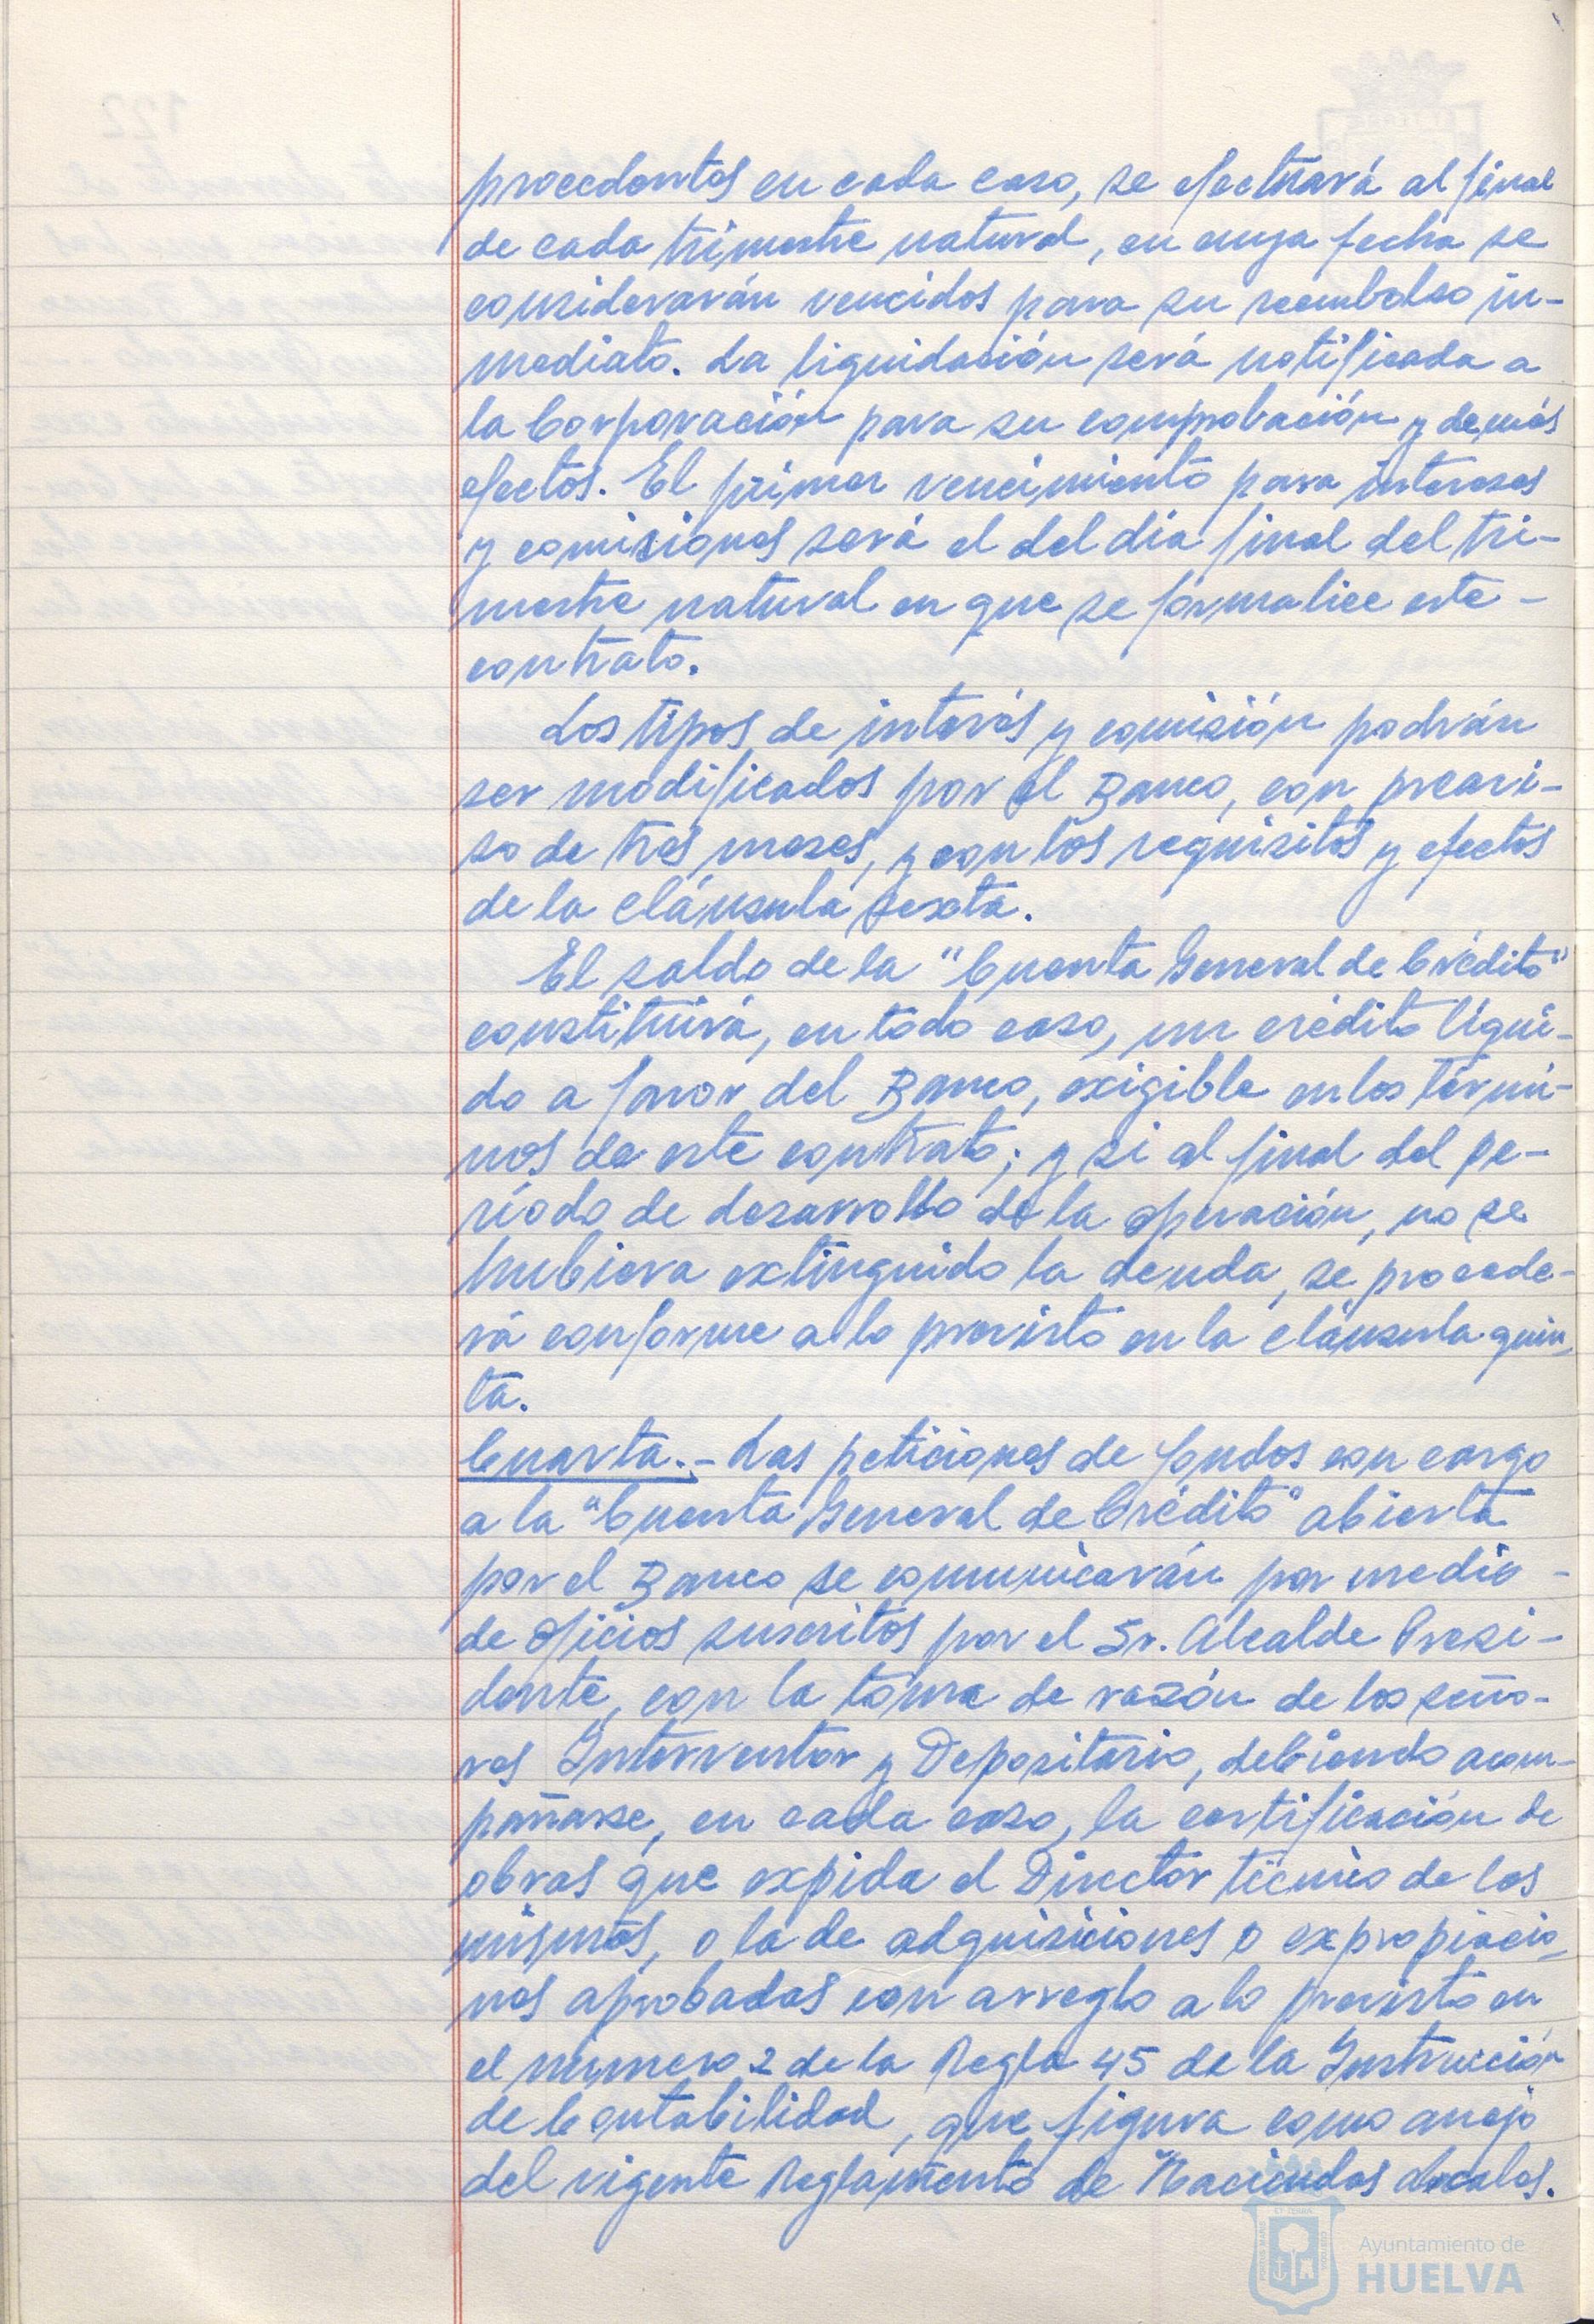 procedentes en cada caso, se efectuará al final
de cada trimestre natural, en cuya fecha se
considerarán vencidos para su reembolso in-
mediato. La liquidación será notificada a
la Corporación para su comprobación y demás
efectos. El primer vencimiento para intereses
y comisiones será el del día final del tri-
mestre natural en que se formalice este -
contrato.
Los tipos de interés y comisión podrán
ser modificados por el Banco, con preavi-
so de tres meses, y con los requisitos y efectos
de la cláusula sexta.
El saldo de la "Cuenta General de Crédito"
constituirá, en todo caso, un crédito líqui-
do a favor del Banco, exigible en los térmi-
nos de este contrato; y si al final del pe-
ríodo de desarrollo de la operación, no se
hubiera extinguido la deuda, se procede-
rá conforme a lo previsto en la cláusula quin-
ta.
Cuarta.- Las peticiones de fondos con cargo
a la "Cuenta General de Crédito" abierta
por el Banco se comunicarán por medio -
de oficios suscritos por el Sr. Alcalde Presi-
dente, con la toma de razón de los seño-
res Interventor y Depositario, debiendo acom-
pañarse, en cada caso, la certificación de
obras que expida el Director técnico de las
mismas, o la de adquisiciones o expropiacio-
nes aprobadas con arreglo a lo previsto en
el número 2 de la Regla 45 de la Instrucción
de Contabilidad, que figura como anejo
del vigente Reglamento de Haciendas Locales.
Ayuntamiento de
HUELVA
122